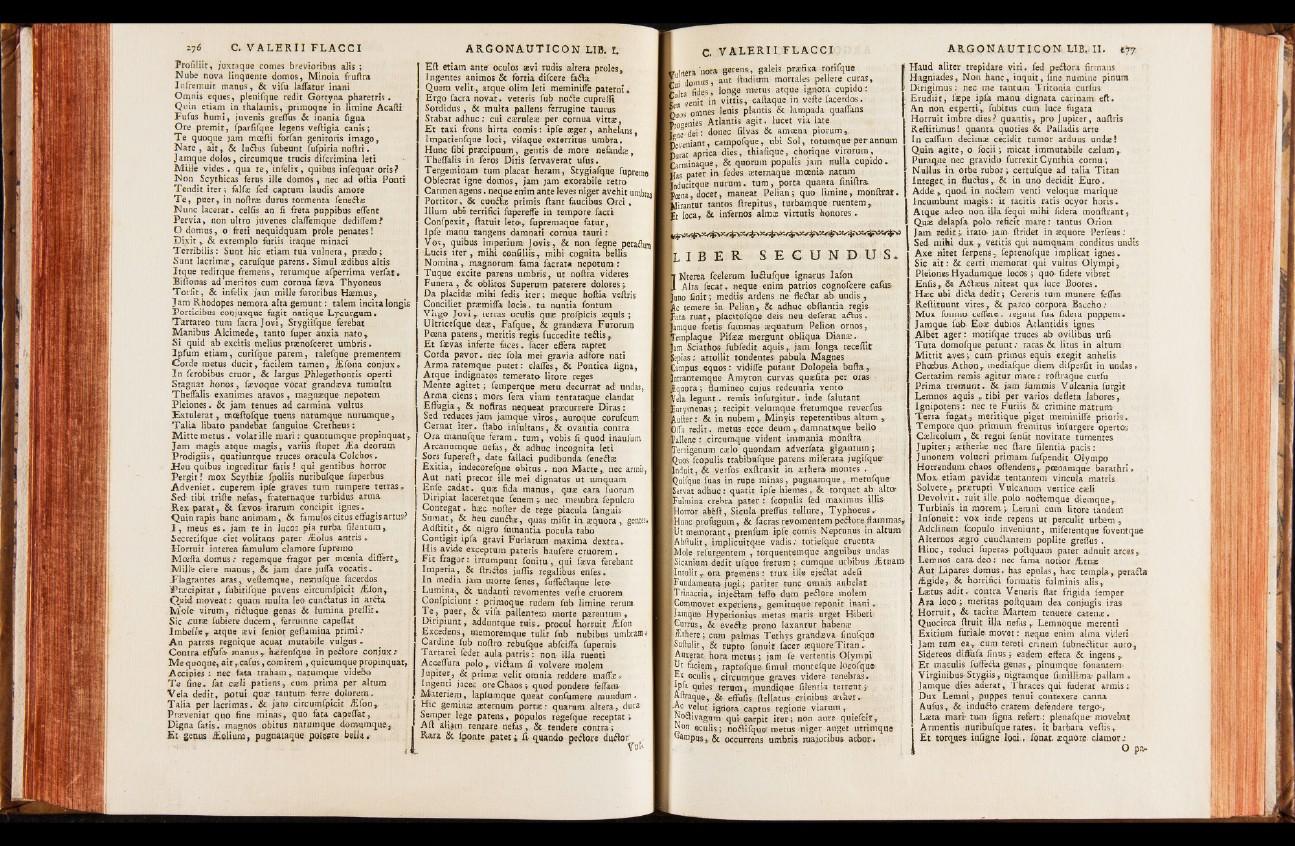 276 C. VALERII FLACCI
Prosiliit, juxtaque comes brevioribus alis ;
Nube nova linquente domos, Minoia frustra
Infremuit manus, & visu lassatur inani
Omnis eques, plenisque redit Gortyna pharetris .
Quin etiam in thalamis, primoque in limine Acasti
Fusus humi, juvenis gressus & inania signa
Ore premit, sparsisque legens vestigia canis ;
Te quoque jam mœsti forsan genitoris imago,
Nate, ait, & luctus subeunt suspiria nostri .
Jamque dolos, circumque trucis discrimina leti
Mille vides . qua te, infelix, quibus insequar oris?
Non Scythicas ferus ille domos, nec ad ostia Ponti
Tendit iter : falsæ sed captum laudis amore
Te, puer, in nostræ durus tormenta senectæ
Nunc lacerat . celsis an si freta puppibus essent
Pervia, non ultro juvenes classemque dedissem?
O domus, o freti nequidquam prole penates!
Dixit, & extemplo furiis iraque minaci
Terribilis : Sunt hic etiam tua vulnera, prædo ;
Sunt lacrimæ, carusque parens. Simul ædibus altis
Itque reditque fremens, rerumque asperrima versat.
Bistonas ad meritos cum cornua sæva Thyoneus
Torsit, & infelix jam mille furoribus Hæmus,
Jam Rhodopes nemora alta gemunt : talem incita longis
Porticibus conjuxque fugit natique Lycurgum.
Tartareo tum sacra Jovi, Stygiisque ferebat
Manibus Alcimede, tanto super anxia nato,
Si quid ab excitis melius prænosceret umbris .
Ipsum etiam, curisque parem, talesque prementem
Corde metus ducit, facilem tamen, Æsona conjux.
In scrobibus cruor, & largus Phlegethontis operti
Stagnat honos, sævoque vocat grandæva tumultu
Thessalis exanimes atavos, magnæque nepotem
Pleiones . & jam tenues ad carmina vultus
Extulerat, mœstosque tuens natumque nurumque,
Talia libato pandebat sanguine Cretheus :
Mitte metus . volat ille mari : quantumque propinquat,
Jam magis atque magis, variis stupet Æa deorum
Prodigiis, quatiuntque truces oracula Colchos.
Heu quibus ingreditur fatis! qui gentibus horror
Pergit! mox Scythiæ spoliis nuribusque superbus
Adveniet. cuperem ipse graves tum rumpere terras.
Sed tibi triste nefas, fraternaque turbidus arma
Rex parat, & sævos irarum concipit ignes.
Quin rapis hanc animam, & famulos citus effugis artus?
I, meus es. jam te in lucos pia turba silentum,
Secretisque ciet volitans pater Æolus antris .
Horruit interea famulum clamore supremo
Mœsta domus : regemque fragor per mœnia differt,
Mille ciere manus, & jam dare jussa vocatis.
Flagrantes aras, vestemque, nemusque sacerdos
Præcipitat, subitisque pavens circumspicit Æson,
Quid moveat : quam multa leo cunctatus in arcta
Mole virum, rictuque genas & lumina pressit.
Sic curæ subiere ducem, ferrumne capessat
Imbelle, atque ævi senior gestamina primi :
An patres regnique acuat mutabile vulgus .
Contra effusa manus, hærensque in pectore conjux :
Me quoque, ait, casus, comitem, quicumque propinquat,
Accipies : nec fata traham, natumque videbo
Te sine. sat cæli patiens, cum prima per altum
Vela dedit, potui quæ tantum ferre dolorem .
Talia per lacrimas. & jam circumspicit Æson,
Præveniat quo fine minas, quo fata capessat,
Digna satis. magnos obitus natumque domumque,
Et genus Æolium, pugnataque poscere bella.
ARGONAUTICON LIB. I.
Est etiam ante oculos ævi rudis altera proles,
Ingentes animos & fortia discere facta
Quem velit, atque olim leti meminisse paterni.
Ergo sacra novat. veteris sub nocte cupressi
Sordidus, & multa pallens ferrugine taurus
Stabat adhuc : cui cæruleæ per cornua vittæ,
Et taxi frons hirta comis : ipse æger, anhelans,
Impatiensque loci, visaque exterritus umbra.
Hunc sibi præcipuum, gentis de more nefandæ,
Thessalis in seros Ditis servaverat usus.
Tergeminam tum placat heram, Stygiasque supremo
Obsecrat igne domos, jam jam exorabile retro
Carmen agens. neque enim ante leves niger avehit umbras
Portitor, & cunctæ primis stant faucibus Orci .
Illum ubi terrifici superesse in tempore sacri
Conspexit, statuit leto, supremaque fatur,
Ipse manu tangens damnati cornua tauri :
Vos, quibus imperium Jovis, & non segne peractum
Lucis iter, mihi consiliis, mihi cognita bellis
Nomina, magnorum fama sacrata nepotum :
Tuque excite parens umbris, ut nostra videres
Funera, & oblitos Superum paterere dolores ;
Da placidæ mihi sedis iter : meque hostia vestris
Conciliet præmissa locis . tu nuntia sontum
Virgo Jovi, terras oculis quæ prospicis æquis ;
Ultricesque deæ, Fasque, & grandæva Furorum
Pœna patens, meritis regis succedite tectis,
Et sævas inferte faces. lacer effera raptet
Corda pavor. nec sola mei gravia adfore nati
Arma ratemque putet : classes, & Pontica signa,
Atque indignatos temerato litore reges
Mente agitet ; semperque metu decurrat ad undas,
Arma ciens ; mors sera viam tentataque claudat
Effugia, & nostras nequeat præcurrere Diras :
Sed reduces jam jamque viros, auroque coruscum
Cernat iter. stabo insultans, & ovantia contra
Ora manusque feram . tum, vobis si quod inausum
Arcanumque nefas, & adhuc incognita leti
Sors superest, date fallaci pudibunda senectæ
Exitia, indecoresque obitus . non Marte, nec armis,
Aut nati precor ille mei dignatus ut umquam
Ense cadat. quæ fida manus, quæ cara suorum
Diripiat laceretque senem ; nec membra sepulcro
Contegat. hæc noster de rege piacula sanguis
Sumat, & heu cunctæ, quas misit in æquora, gentes.
Adstitit, & nigro fumantia pocula tabo
Contigit ipsa gravi Furiarum maxima dextra.
His avide exceptum pateris hausere cruorem .
Fit fragor : irrumpunt sonitu, qui sæva ferebant
Imperia, & strictos jussis regalibus enses.
In media jam morte senes, suffectaque leto
Lumina, & undanti revomentes veste cruorem
Conspiciunt : primoque rudem sub limine rerum
Te, puer, & visa pallentem morte parentum,
Diripiunt, adduntque tuis. procul horruit Æson
Excedens, memoremque tulit sub nubibus umbram.
Cardine sub nostro rebusque abscissa supernis
Tartarei sedet aula patris : non illa ruenti
Accessura polo, victam si volvere molem
Jupiter, & primæ velit omnia reddere massæ.
Ingenti jacet ore Chaos ; quod pondere fessam
Materiem, lapsumque queat consumere mundum .
Hic geminæ æternum portæ : quarum altera, dura
Semper lege patens, populos regesque receptat ;
Ast aliam tentare nefas, & tendere contra ;
Rara & sponte patet ; si quando pectore ductor
C. VALERII FLACCI
Vulnera nota gerens, galeis præfixa rotisque
Cui domus, aut studium mortales pellere curas,
Culta fides, longe metus atque ignota cupido :
Seu venit in vittis, castaque in veste sacerdos.
Quos omnes lenis plantis & lampada quassans
Progenies Atlantis agit. lucet via late
Igne dei : donec silvas & amœna piorum,
Deveniant, camposque, ubi Sol, totumque per annum
Durat aprica dies, thiasique, chorique virorum,
Carminaque, & quorum populis jam nulla cupido.
Has pater in sedes æternaque mœnia natum
Inducitque nurum. tum, porta quanta sinistra
Pœna, docet, maneat Pelian ; quo limine, monstrat.
Mirantur tantos strepitus, turbamque ruentem,
Et loca, & infernos almæ virtutis honores .
LIBER SECUNDUS.
INterea scelerum luctusque ignarus Iason
Alta secat . neque enim patrios cognoscere casus
Juno sinit ; mediis ardens ne flectat ab undis,
Ac temere in Pelian, & adhuc obstantia regis
Fata ruat, placitosque deis neu deserat actus.
Jamque fretis summas æquatum Pelion ornos,
Templaque Pisææ mergunt obliqua Dianæ.
Jam Sciathos subsedit aquis, jam longa recessit
Sepias : attollit tondentes pabula Magnes
Campus equos : vidisse putant Dolopeia busta,
Intrantemque Amyron curvas quæsita per oras
Æquora ; flumineo cujus redeuntia vento
Vela legunt. remis insurgitur. inde salutant
Eurymenas ; recipit velumque fretumque reversus
Auster : & in nubem, Minyis repetentibus altum,
Ossa redit. metus ecce deum, damnataque bello
Pallene : circumque vident immania monstra
Terrigenum cælo quondam adversata gigantum ;
Quos scopulis trabibusque parens miserata jugisque
Induit, & versos exstruxit in æthera montes .
Quisque suas in rupe minas, pugnamque, metusque
Servat adhuc : quatit ipse hiemes, & torquet ab alto
Fulmina crebra pater : scopulis sed maximus illis
Horror abest, Sicula pressus tellure, Typhoeus.
Hunc profugum, & sacras revomentem pectore flammas,
Ut memorant, prensum ipse comis Neptunus in altum
Abstulit, implicuitque vadis : totiesque cruenta
Mole resurgentem, torquentemque anguibus undas
Sicanium dedit usque fretum ; cumque urbibus Ætnam
Intulit, ora premens : trux ille ejectat adesi
Fundamenta jugi ; pariter tunc omnis anhelat
Trinacria, injectam fesso dum pectore molem
Commovet experiens, gemituque reponit inani .
Jamque Hyperionius metas maris urget Hiberi
Currus, & evectæ prono laxantur habenæ
Æthere ; cum palmas Tethys grandæva sinusque
Sustulit, & rupto sonuit sacer æquore Titan.
Auxerat hora metus ; jam se vertentis Olympi
Ut faciem, raptosque simul montesque locosque
Ex oculis, circumque graves videre tenebras.
Ipsa quies rerum, mundique silentia terrent ;
Astraque, & effusis stellatus crinibus æther.
Ac velut ignota captus regione viarum,
Noctivagum qui carpit iter ; non aure quiescit,
Non oculis ; noctisque metus niger auget utrimque
Campus, & occurrens umbris majoribus arbor.
ARGONAUTICON LIB. II. 277
Haud aliter trepidare viri. sed pectora firmans
Hagniades, Non hanc, inquit, sine numine pinum
Dirigimus : nec me tantum Tritonia cursus
Erudiit, sæpe ipsa manu dignata carinam est.
An non experti, subitus cum luce fugata
Horruit imbre dies? quantis, pro Jupiter, austris
Restitimus! quanta quoties & Palladis arte
In cassum decimæ cecidit tumor arduus undæ!
Quin agite, o socii ; micat immutabile cælum,
Puraque nec gravido surrexit Cynthia cornu ;
Nullus in orbe rubor ; certusque ad talia Titan
Integer in fluctus, & in uno decidit Euro.
Adde, quod in noctem venti veloque marique
Incumbunt magis : it tacitis ratis ocyor horis.
Atque adeo non illa sequi mihi sidera monstrant,
Quæ delapsa polo reficit mare : tantus Orion
Jam redit ; irato jam stridet in æquore Perseus :
Sed mihi dux, vetitis qui numquam conditus undis
Axe nitet serpens, septenosque implicat ignes .
Sic ait : & certi memorat qui vultus Olympi,
Pleiones Hyadumque locos ; quo sidere vibret
Ensis, & Actæus niteat qua luce Bootes.
Hæc ubi dicta dedit ; Cereris tum munere fessas
Restituunt vires, & parco corpora Baccho :
Mox somno cessere. regunt sua sidera puppem.
Jamque sub Eoæ dubios Atlantidis ignes
Albet ager : motisque truces ab ovilibus ursi
Tuta domosque petunt : raras & litus in altum
Mittit aves ; cum primus equis exegit anhelis
Phœbus Athon, mediasque diem dispersit in undas,
Certatim remis agitur mare : rostraque cursu
Prima tremunt. & jam summis Vulcania surgit
Lemnos aquis, tibi per varios defleta labores,
Ignipotens : nec te Furiis & crimine matrum
Terra fugat, meritique piget meminisse prioris.
Tempore quo primum fremitus insurgere opertos
Cælicolum, & regni sensit novitate tumentes
Jupiter ; ætheriæ nec stare silentia pacis :
Junonem volucri primam suspendit Olympo
Horrendum chaos ostendens, pœnamque barathri .
Mox etiam pavidæ tentantem vincula matris
Solvere, prærupti Vulcanum vertice cæli
Devolvit . ruit ille polo noctemque diemque,
Turbinis in morem ; Lemni cum litore tandem
Insonuit : vox inde repens ut perculit urbem,
Adclinem scopulo inveniunt, miserentque foventque
Alternos ægro cunctantem poplite gressus .
Hinc, reduci superas postquam pater adnuit arces,
Lemnos cara deo : nec fama notior Ætnæ
Aut Lipares domus. has epulas, hæc templa, peracta
Ægide, & horrifici formatis fulminis alis,
Lætus adit. contra Veneris stat frigida semper
Ara loco ; meritas postquam dea conjugis iras
Horruit, & tacitæ Martem tenuere catenæ.
Quocirca struit illa nefas, Lemnoque merenti
Exitium furiale movet : neque enim alma videri
Jam tum ea, cum tereti crinem subnectitur auro,
Sidereos diffusa sinus ; eadem effera & ingens,
Et maculis suffecta genas, pinumque sonantem
Virginibus Stygiis, nigramque simillima pallam .
Jamque dies aderat, Thraces qui fuderat armis :
Dux Lemni, puppes tenui contexere canna
Ausus, & inducto cratem defendere tergo,
Læta mari tum signa refert : plenasque movebat
Armentis nuribusque rates. it barbara vestis,
Et torques insigne loci. sonat æquore clamor :
O